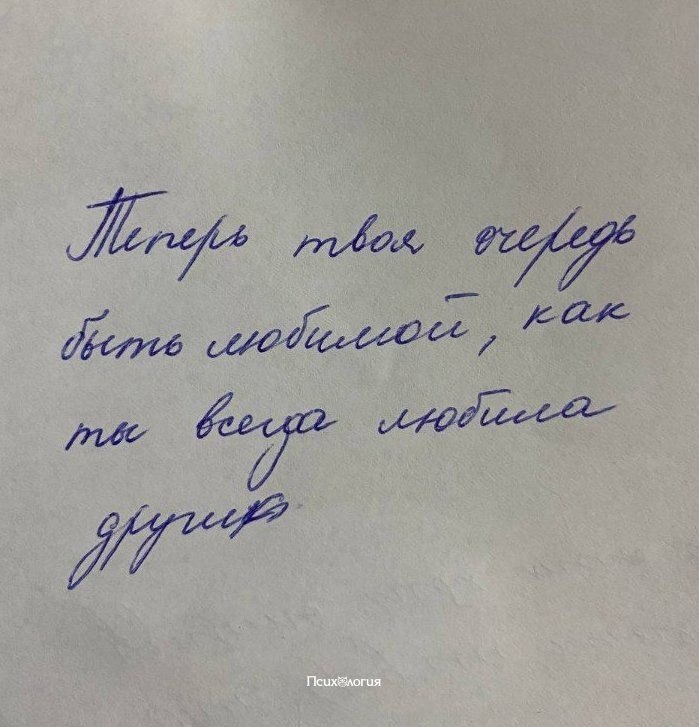 Теперь твоя очередь
быть любимой, как
ты всегда любила
других
Психология